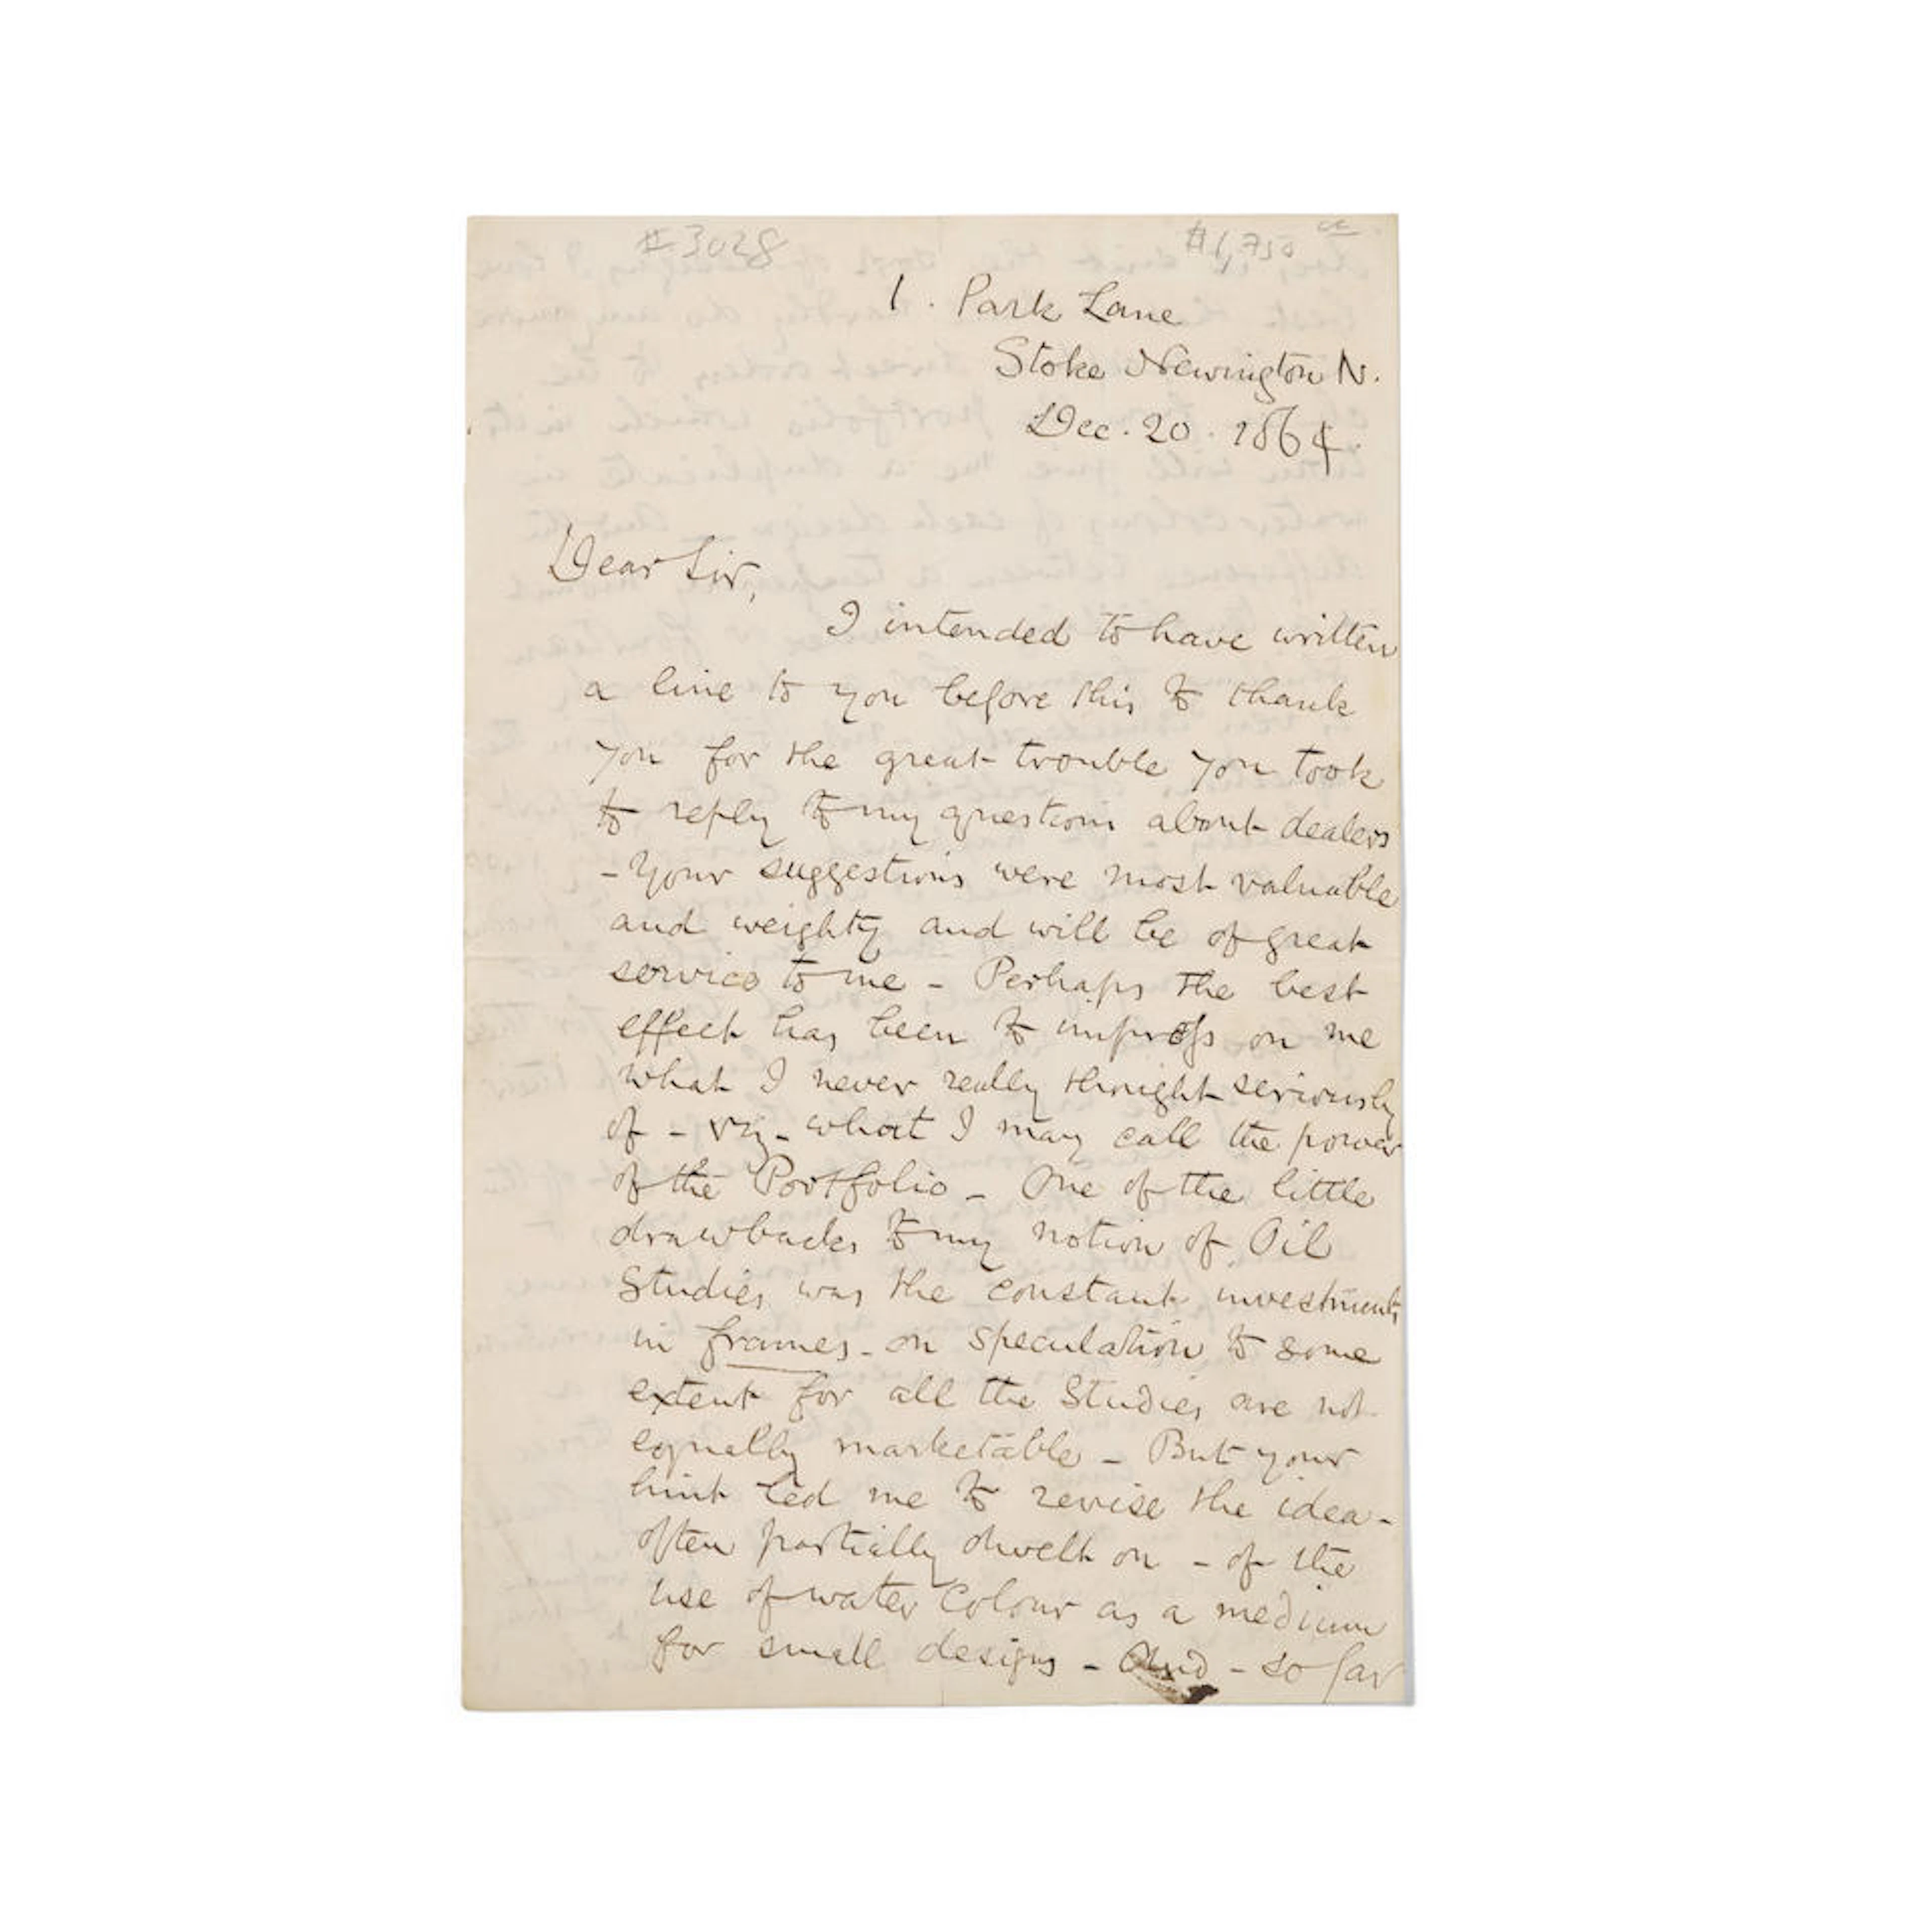 #3028
$1,750
1. Park Lane
Stoke Newington N.
Dec. 20. 1864.
Dear Sir,
I intended to have written
a line to you before this to thank
you for the great trouble you took
to reply to my questions about dealers
- Your suggestions were most valuable
and weighty and will be of great
service to me - Perhaps the best
effect has been to impress on me
what I never really thought seriously
of - viz - what I may call the power
of the Portfolio - One of the little
drawbacks to my notion of Oil
Studies was the constant investments
in frames - on speculation to some
extent for all the Studies are not
equally marketable - But your
hint led me to revise the idea -
often partially dwelt on - of the
use of water colour as a medium
for small designs - And - so far